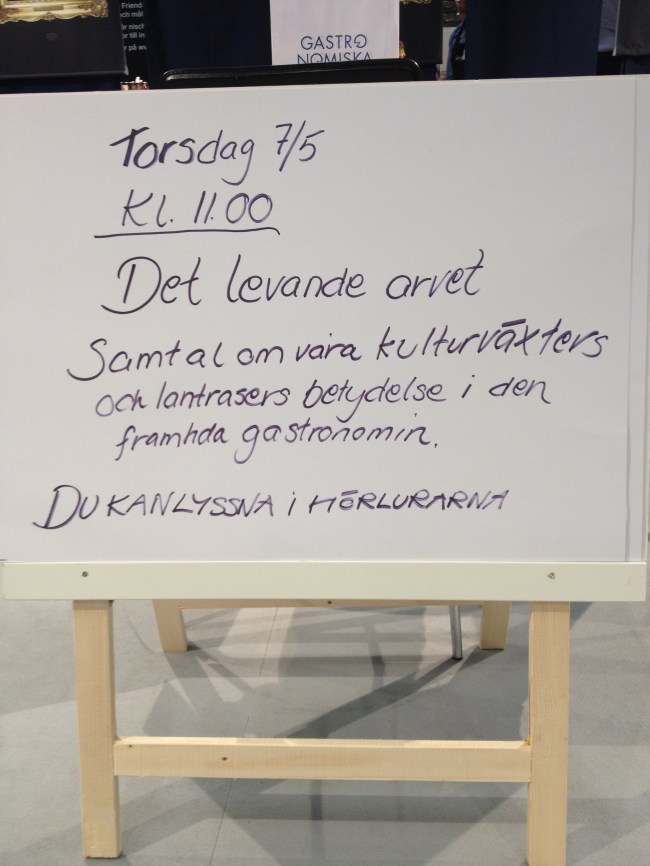 Friend
och mål
är nisch
er till in
r på ww
GASTRO
NOMISKA
Torsdag 7/5
Kl. 11.00
Det levande arvet
Samtal om våra kulturväxters
och lantrasers betydelse i den
framtida gastronomin.
DU KAN LYSSNA i HÖRLURARNA